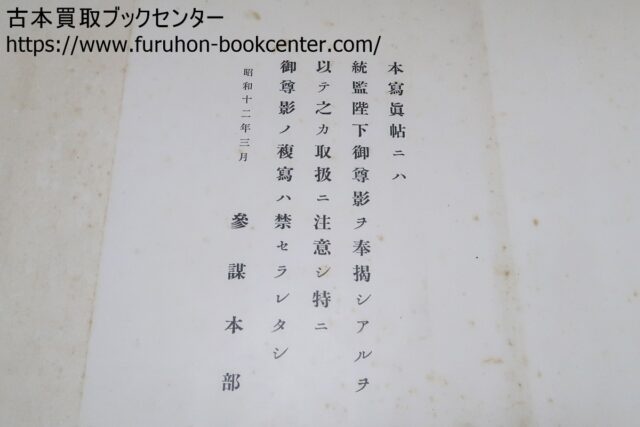 古本買取ブックセンター
https://www.furuhon-bookcenter.com/
本寫眞帖ニハ
統監陛下御尊影ヲ奉揭シアルヲ
以テ之カ取扱ニ注意シ特ニ
御尊影ノ複寫ハ禁セラレタシ
昭和十二年三月
參謀本部